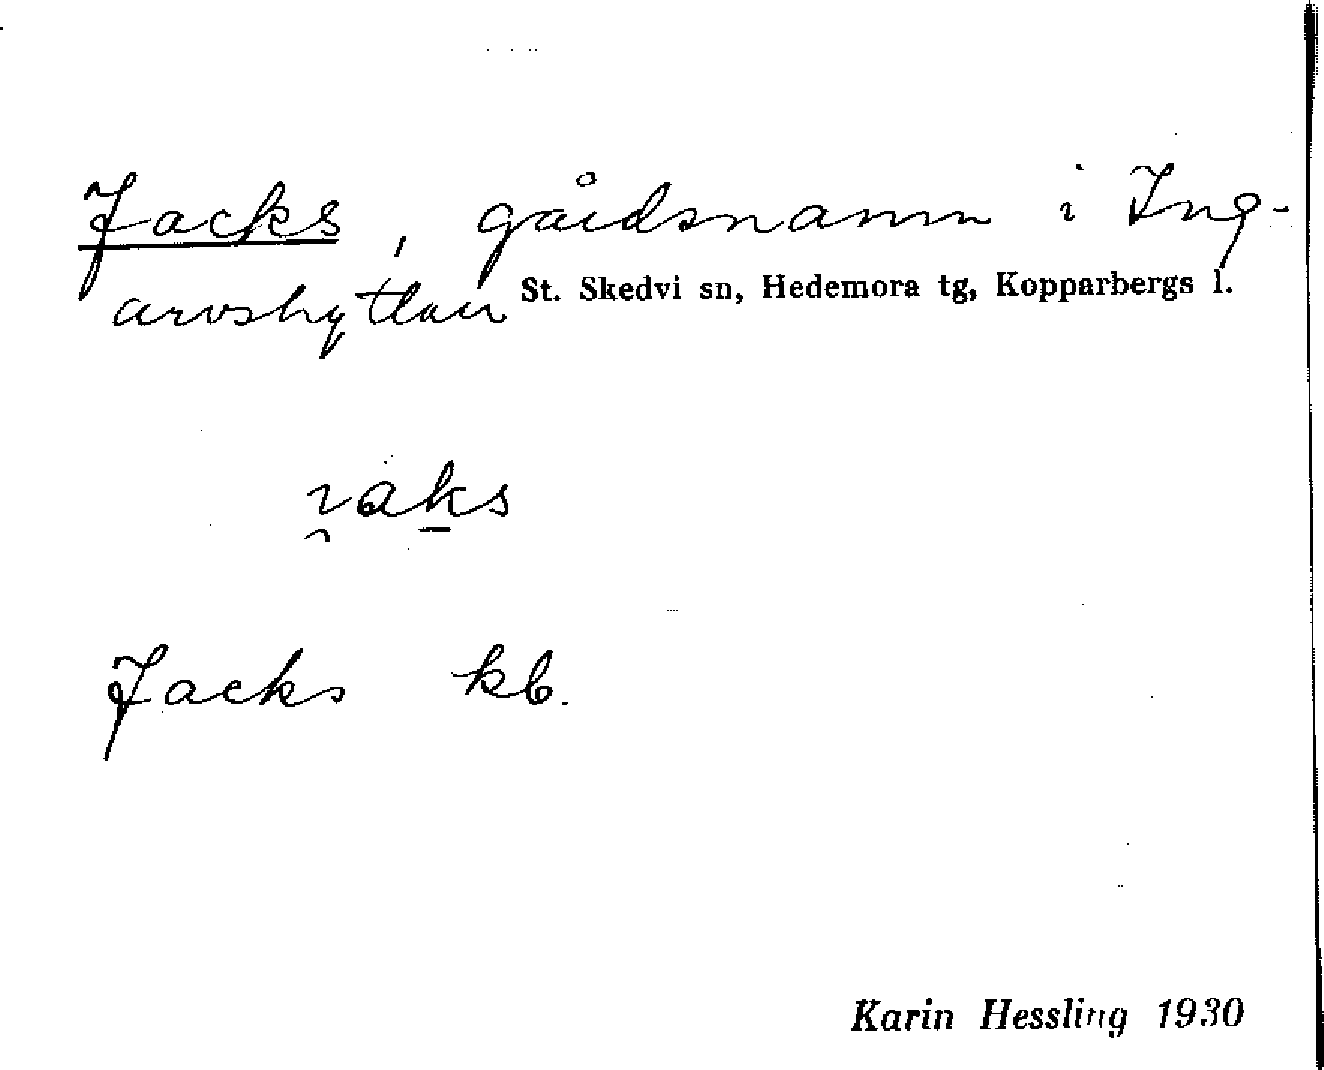 Jacks, gårdsnamn i Ing-
arvshyttan St. Skedvi sn, Hedemora tg, Kopparbergs l.
i̯aks
Jacks kb.
Karin Hessling 1930